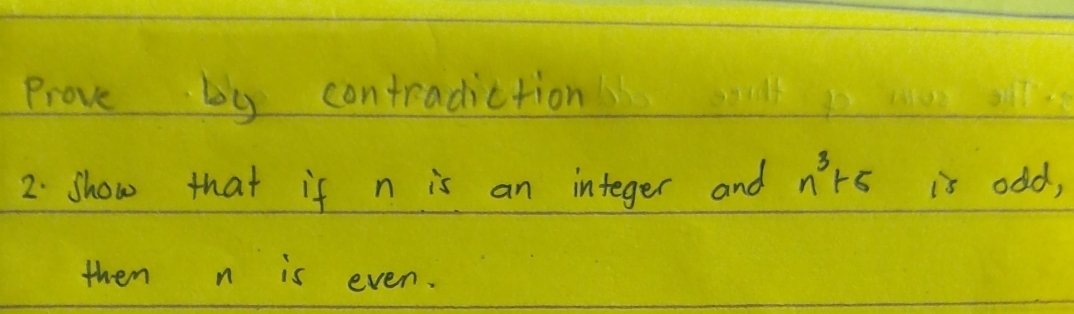 Prove by contradiction
2. Show that if n is an integer and n³+5 is odd,
then n is even.